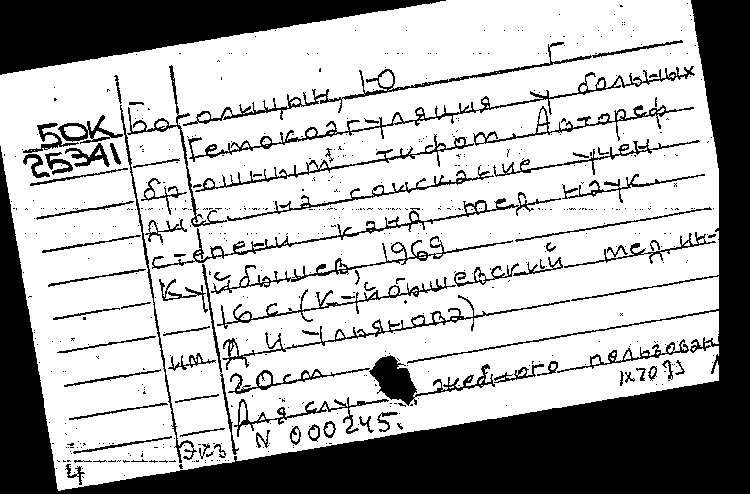 50К
25341
Боголицын, Ю Г
Гемокоагуляция у больных
брюшным тифом. Автореф
дисс. на соискание учен.
степени канд. мед. наук.
Куйбышев, 1969
16 с. (Куйбышевский мед. ин-
им. Д. И Ульянова).
20 см.
Для служебного пользован
Экз. N 000245.
4